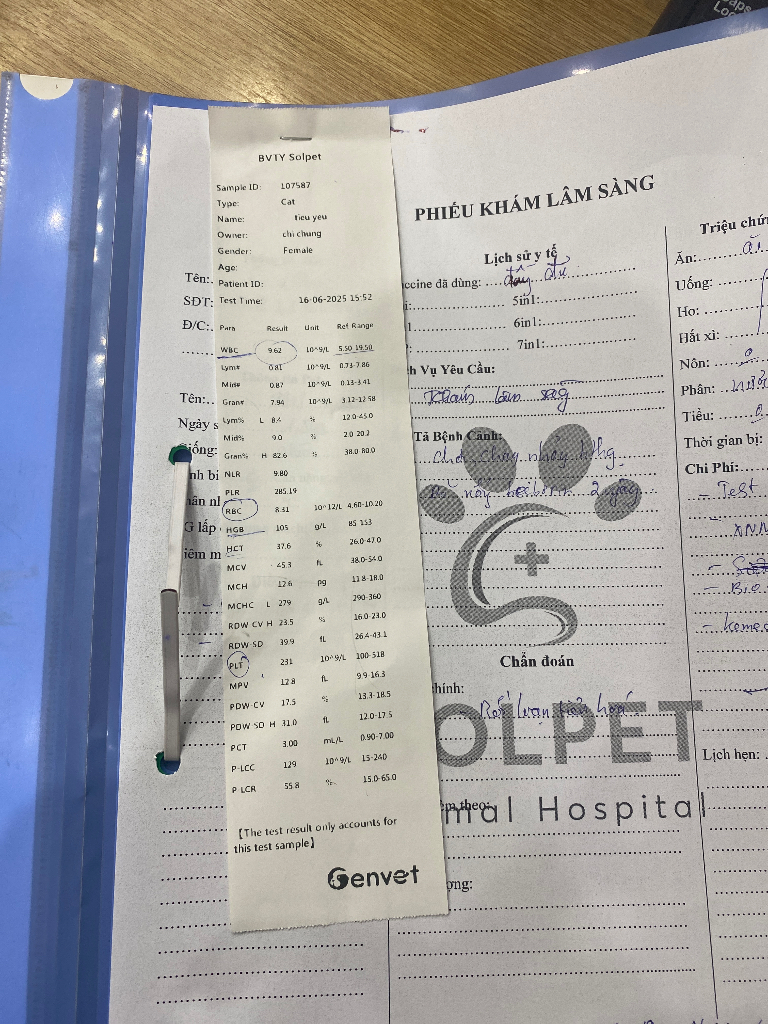 BVTY Solpet
Sample ID: 107587
Type: Cat
Name: tieu yeu
Owner: chi chung
Gender: Female
Age:
Patient ID:
Test Time: 16-06-2025 15:52
Para Result Unit Ref Range
WBC 9.62 10^9/L 5.50-19.50
Lym# 0.81 10^9/L 0.73-7.86
Mid# 0.87 10^9/L 0.13-3.41
Gran# 7.94 10^9/L 3.12-12.58
Lym% L 8.4 % 12.0-45.0
Mid% 9.0 % 2.0-20.2
Gran% H 82.6 % 38.0-80.0
NLR 9.80
PLR 285.19
RBC 8.31 10^12/L 4.60-10.20
HGB 105 g/L 85-153
HCT 37.6 % 26.0-47.0
MCV 45.3 fL 38.0-54.0
MCH 12.6 pg 11.8-18.0
MCHC L 279 g/L 290-360
RDW-CV H 23.5 % 16.0-23.0
RDW-SD 39.9 fL 26.4-43.1
PLT 231 10^9/L 100-518
MPV 12.8 fL 9.9-16.3
PDW-CV 17.5 % 13.3-18.5
PDW-SD H 31.0 fL 12.0-17.5
PCT 3.00 mL/L 0.90-7.00
P-LCC 129 10^9/L 15-240
P-LCR 55.8 % 15.0-65.0
【The test result only accounts for
this test sample】
Genvet
Tên:
SĐT:
Đ/C:
Tên:
Ngày s
Giống:
PHIẾU KHÁM LÂM SÀNG
Lịch sử y tế
ccine đã dùng: đầy đủ
5in1:
6in1:
7in1:
h Vụ Yêu Cầu:
Khám lâm sàng
Tả Bệnh Cảnh:
2 ngày
Chẩn đoán
hính:
Rối loạn tiêu hoá
OLPET
mal Hospital
èm theo:
ợng:
Triệu chứ
Ăn:
Uống:
Ho:
Hắt xì:
Nôn:
Phân:
Tiểu:
Thời gian bị:
Chi Phí:
- Test
XNM
- Bio
Lịch hẹn: